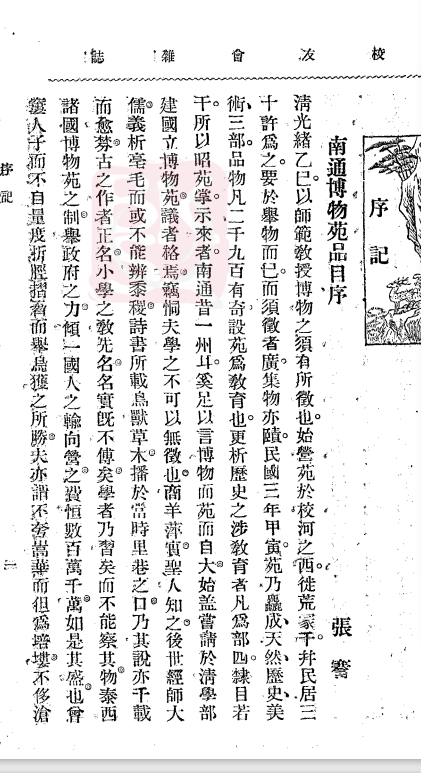 校友會雜誌
序記
南通博物苑品目序
張謇
淸光緒乙巳。以師範敎授博物之須有所徵也。始營苑於校河之西。徙荒冢千。幷民居三
十許爲之。要於舉物而已。而須徵者廣。集物亦賾。民國三年甲寅。苑乃麤成。天然、歷史、美
術、三部。品物凡二千九百有奇。設苑爲敎育也。更析歷史之涉敎育者凡爲部四。隸目若
干。所以昭苑掌示來者。南通昔一州耳。奚足以言博物。而苑而自大。始蓋嘗請於淸學部
建國立博物苑。議者格焉。竊恫夫學之不可以無徵也。商羊萍實。聖人知之。後世經師大
儒。義析毫毛。而或不能辨黍稷。詩書所載鳥獸草木。播於當時里巷之口。乃其說亦千載
而愈棼。古之作者正名。小學之敎先名。名實旣不傅矣。學者乃習矣而不能察其物。泰西
諸國博物苑之制。舉政府之力。傾一國人之輸向營之。費恒數百萬千萬。如是其盛也。曾
窶人子而不自量度。折脛摺脅而舉烏獲之所勝。夫亦謂不夸嵩華而但爲培塿。不侈滄
序記
二